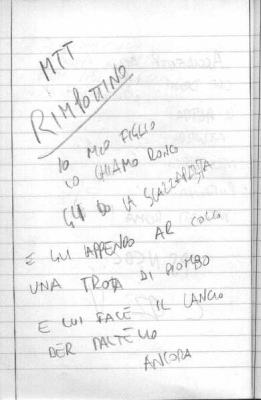 MTT
RIMPOTTINO
IO MIO FIGLIO
LO CHIAMO ROMOLO
GLI DO LA SCAZZABESTA
E GLI APPENDO AR COLLO
UNA TROTA DI PIOMBO
E LUI FACE IL LANCIO
DER MARTELLO
ANCORA